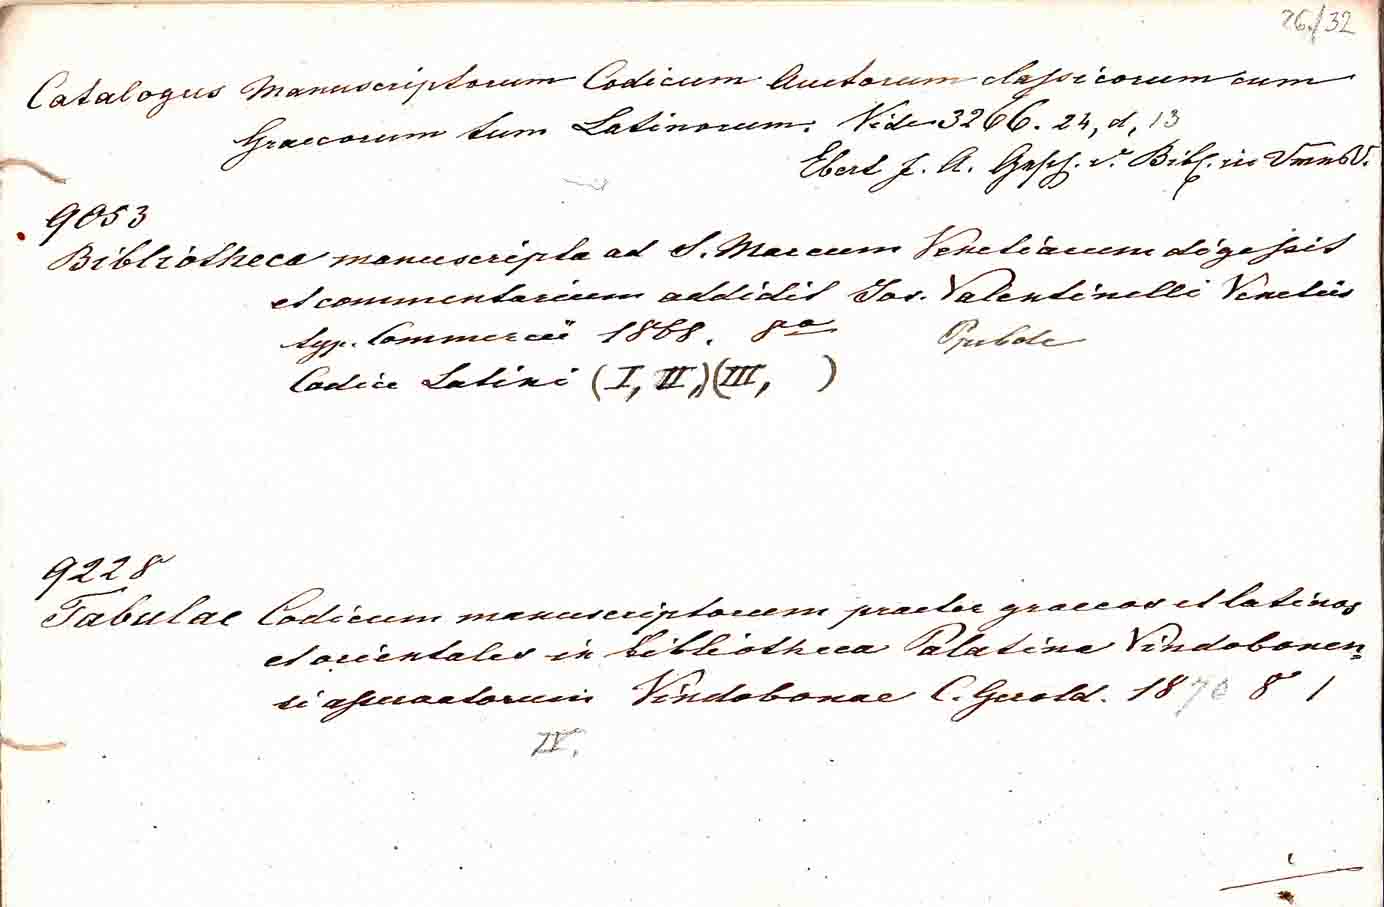 26/32
Catalogus Manuscriptorum Codicum Auctorum classicorum cum
Graecorum tum Latinorum. Vide 3266. 24, d, 13
Ebert F. A. Gesch. d. Bibl. in
9053
Bibliotheca manuscripta ad S. Marcum Venetiarum digessit
et commentarium addidit Jos. Valentinelli Venetiis
typ. Commercii 1868. 8o
Codice Latini (I, II,)(III, )
9228
Tabulae Codicum manuscriptorum praeter graecos et latinos
et orientales in bibliotheca Palatina Vindobonen=
si asservatorum Vindobonae C. Gerold. 1870 8 1
IV.